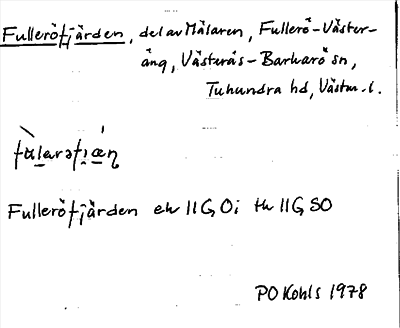 Fulleröfjärden, del av Mälaren, Fullerö-Väster-
äng, Västerås-Barkarö sn,
Tuhundra hd, Västm. l.
Fulleröfjärden ek 11G Oi tk 11G SO
PO Kohls 1978